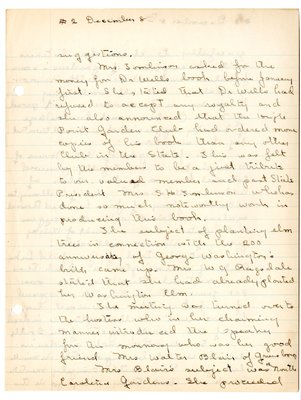 #2 December 8
suggestions.
Mrs Tomlinson asked for the
money for Dr Wells book before January
first. She stated that Dr Wells had
refused to accept any royalty and
she also announced that the
Point Garden Club had ordered more
copies of his book than any other
Club in the State. This was felt
by the members to be a just tribute
to our valued member and past State
President Mrs S H Tomlinson who has
done so much noteworthy work in
producing this book.
The subject of planting elm
trees in connection with the 200
anniversity of George Washington's
birth came up. Mrs W G Ragsdale
stated that she had already planted
her Washington Elm.
The meeting was turned over to
the hostess who in her charming
manner introduced the speaker
for the morning who was her good
friend Mrs Walter Blair of Greensboro
Mrs Blair's subject was North
Carolina Gardens. She proceeded